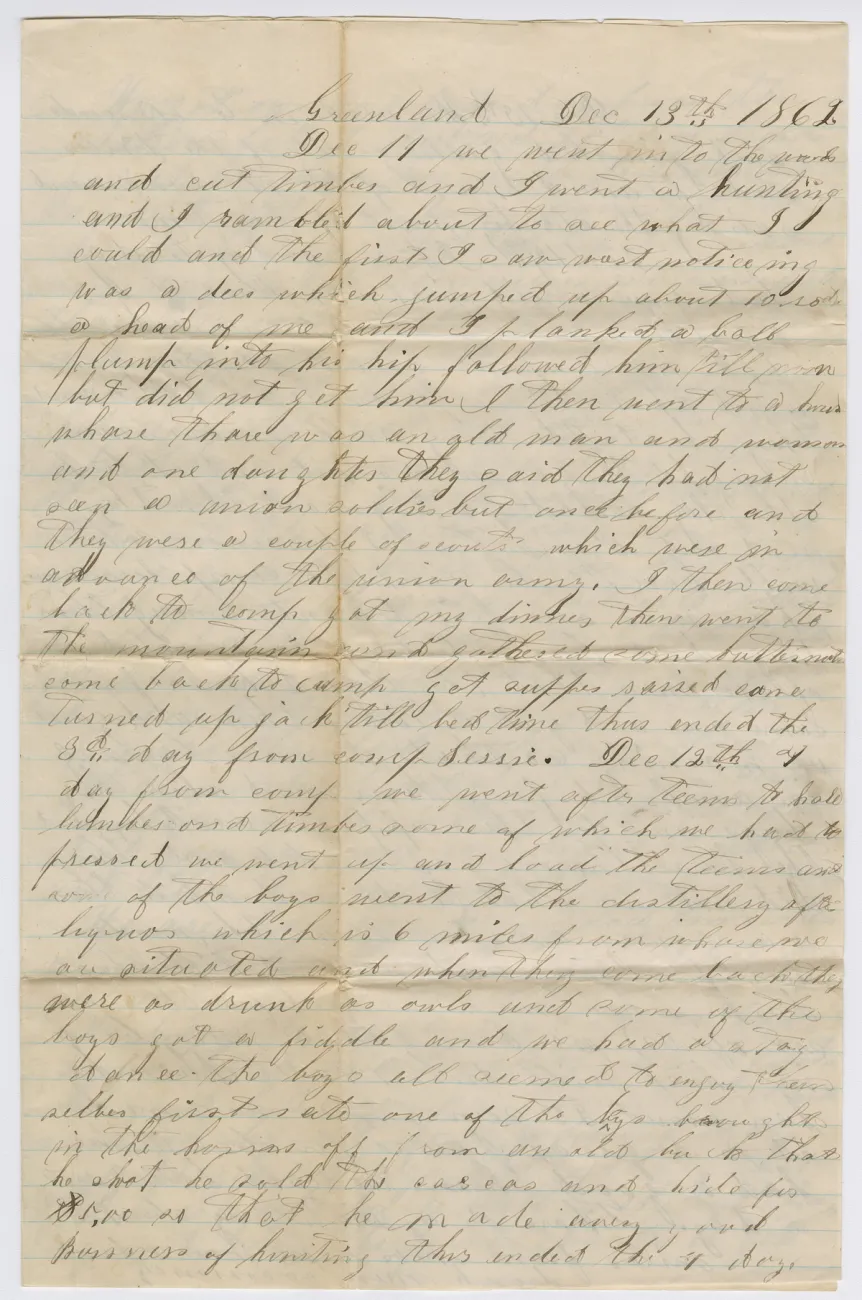 Greenland Dec 13th 1862
Dec 11 we went in to the woods
and cut timber and I went a hunting
and I rambled about to see what I
could and the first I saw worst noticeing
was a deer which jumped up about 10 rods
a head of me and I planked a ball
plump into his hip followed him till noon
but did not get him I then went to a house
whare thare was an old man and woman
and one daughter they said they had not
seen a union soldier but once before and
they were a couple of scouts which were in
advance of the union army. I then come
back to camp got my dinner then went to
the mountain and gathered some butternuts
come back to camp get supper raised cane
turned up jack till bed time thus ended the
3d day from camp Jessie. Dec 12th 4
day from camp we went after teems to hale
lumber and timber some of which we had to
pressed we went up and load the teems and
some of the boys went to the distillery after
liquor which is 6 miles from whare we
are situated and when they come back they
were as drunk as owls and some of the
boys got a fiddle and we had a stag
dance. the boys all seemed to enjoy them
selbes first rate one of the boys brought
in the horns off from an old buck that
he shot he sold the carcas and hide for
$5,00 so that he made a very good
buisness of huniting this ended the 4 day.